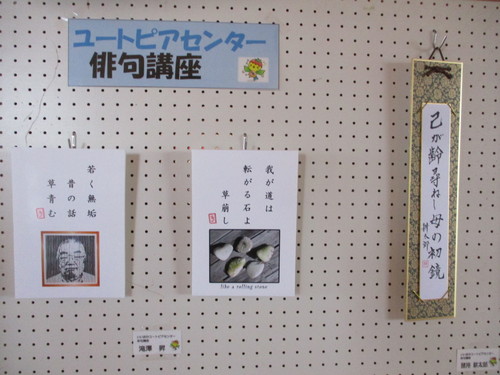 ユートピアセンター
俳句講座
若く無垢
昔の話
草青む
我が道は
転がる石よ
草萌し
like a rolling stone
己が齢尋ねし母の初鏡
滝澤 昇